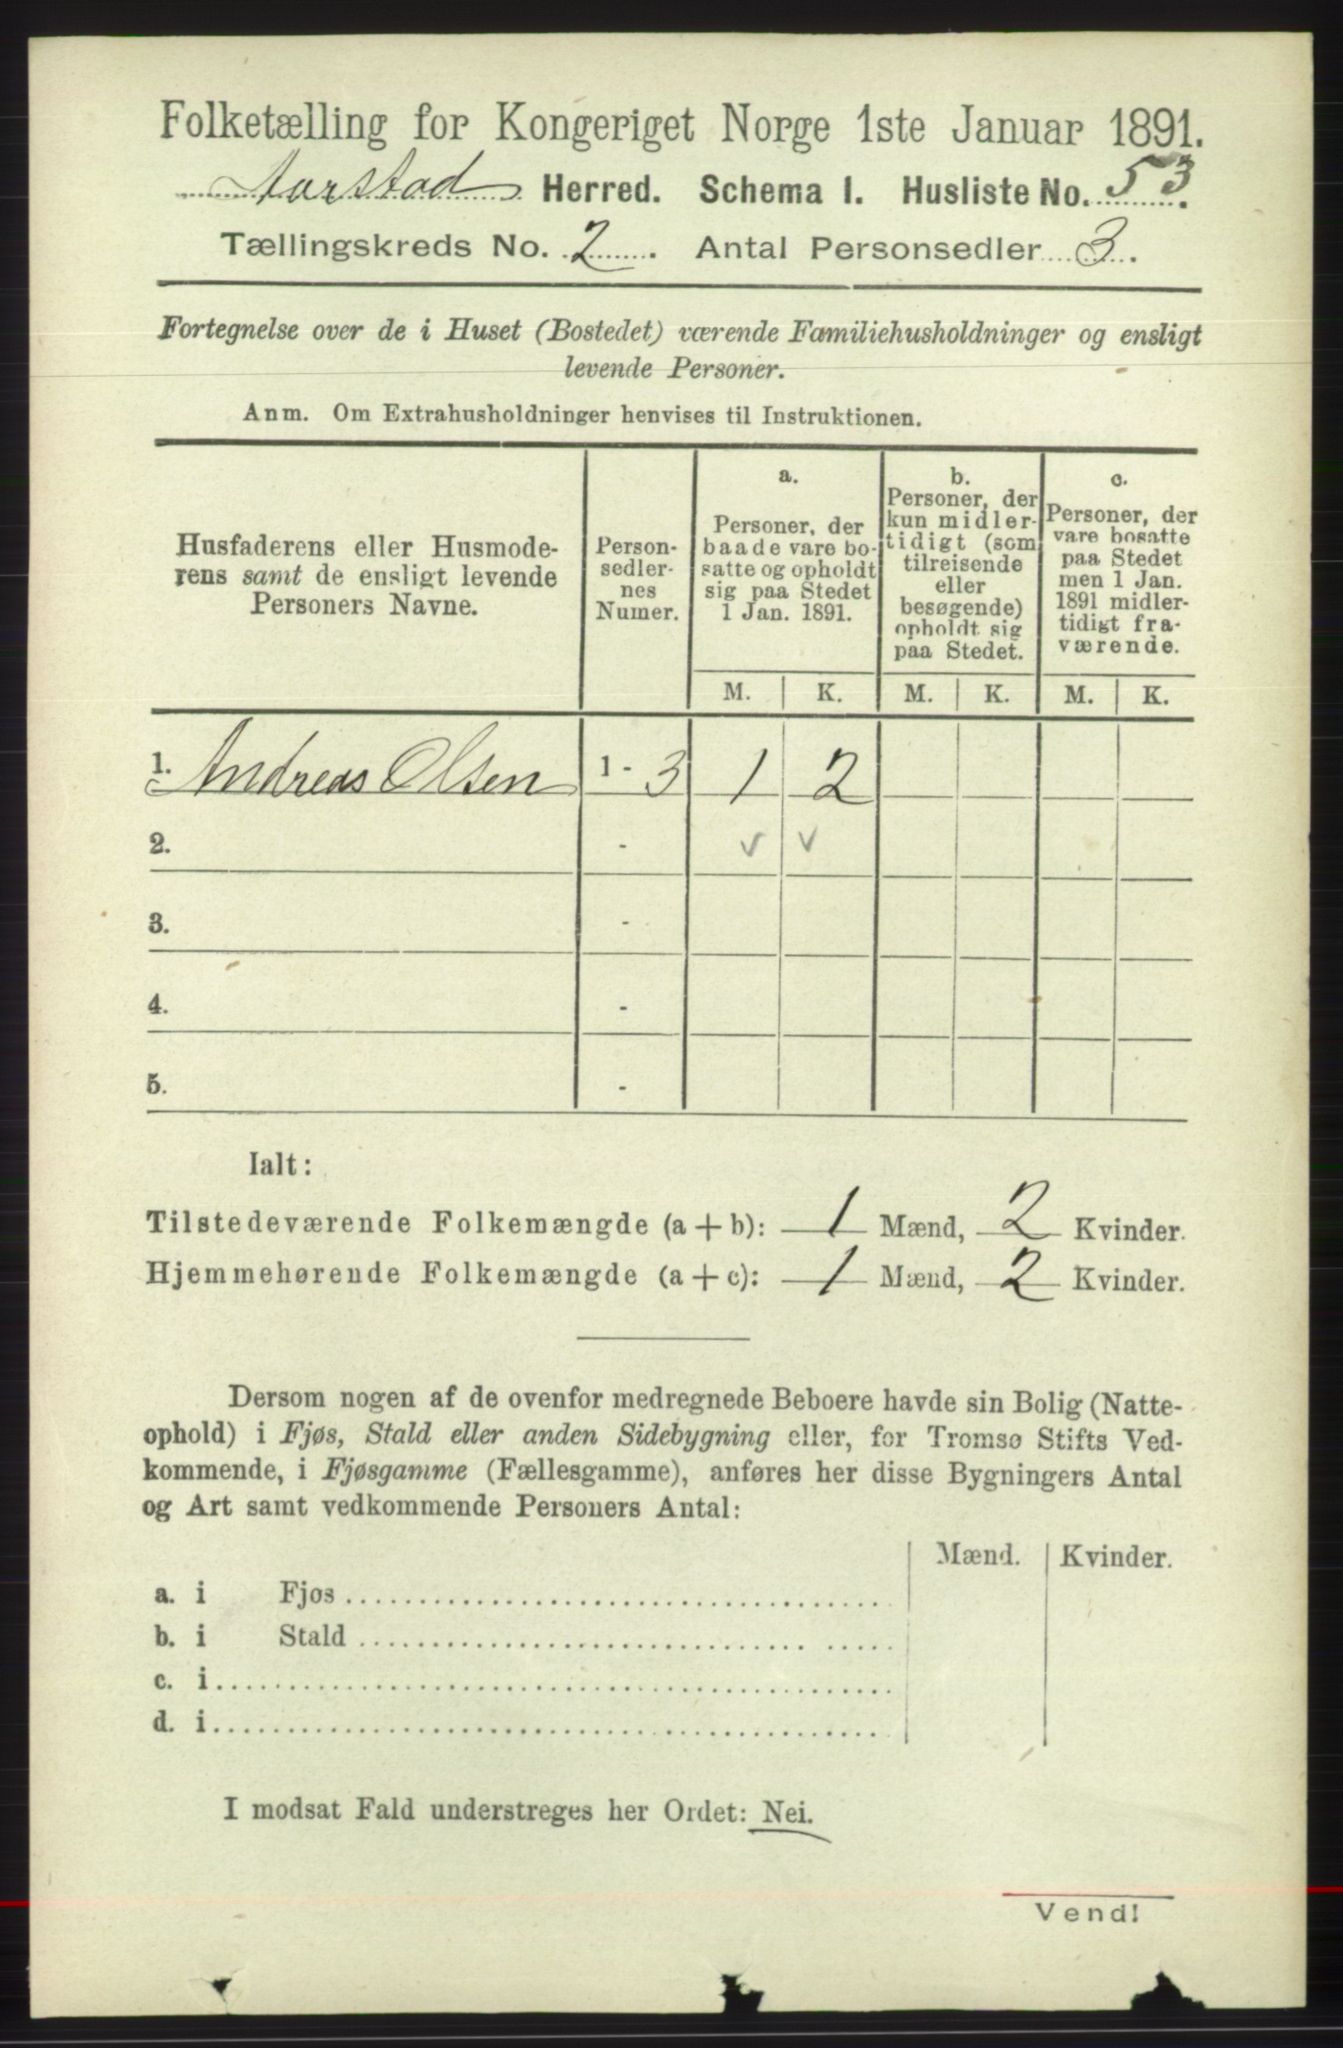 Folketælling for Kongeriget Norge 1ste Januar 1891.
Aarstad Herred. Schema I. Husliste No. 53.
Tællingskreds No. 2. Antal Personsedler 3.
Fortegnelse over de i Huset (Bostedet) værende Familiehusholdninger og ensligt
levende Personer.
Anm. Om Extrahusholdninger henvises til Instruktionen.
Husfaderens eller Husmode-
rens samt de ensligt levende
Personers Navne.
Person-
sedler-
nes
Numer.
a.
Personer, der
baade vare bo-
satte og opholdt
sig paa Stedet
1 Jan. 1891.
b.
Personer, der
kun midler-
tidigt (som
tilreisende
eller
besøgende)
opholdt sig
paa Stedet.
c.
Personer, der
vare bosatte
paa Stedet
men 1 Jan.
1891 midler-
tidigt fra-
værende.
M. K. M. K. M. K.
1. Andreas Olsen 1 - 3 1 2
2. - v v
3. -
4. -
5. -
Ialt:
Tilstedeværende Folkemængde (a + b): 1 Mænd, 2 Kvinder.
Hjemmehørende Folkemængde (a + c): 1 Mænd, 2 Kvinder.
Dersom nogen af de ovenfor medregnede Beboere havde sin Bolig (Natte-
ophold) i Fjøs, Stald eller anden Sidebygning eller, for Tromsø Stifts Ved-
kommende, i Fjøsgamme (Fællesgamme), anføres her disse Bygningers Antal
og Art samt vedkommende Personers Antal:
Mænd. Kvinder.
a. i Fjøs
b. i Stald
c. i
d. i
I modsat Fald understreges her Ordet: Nei.
Vend!